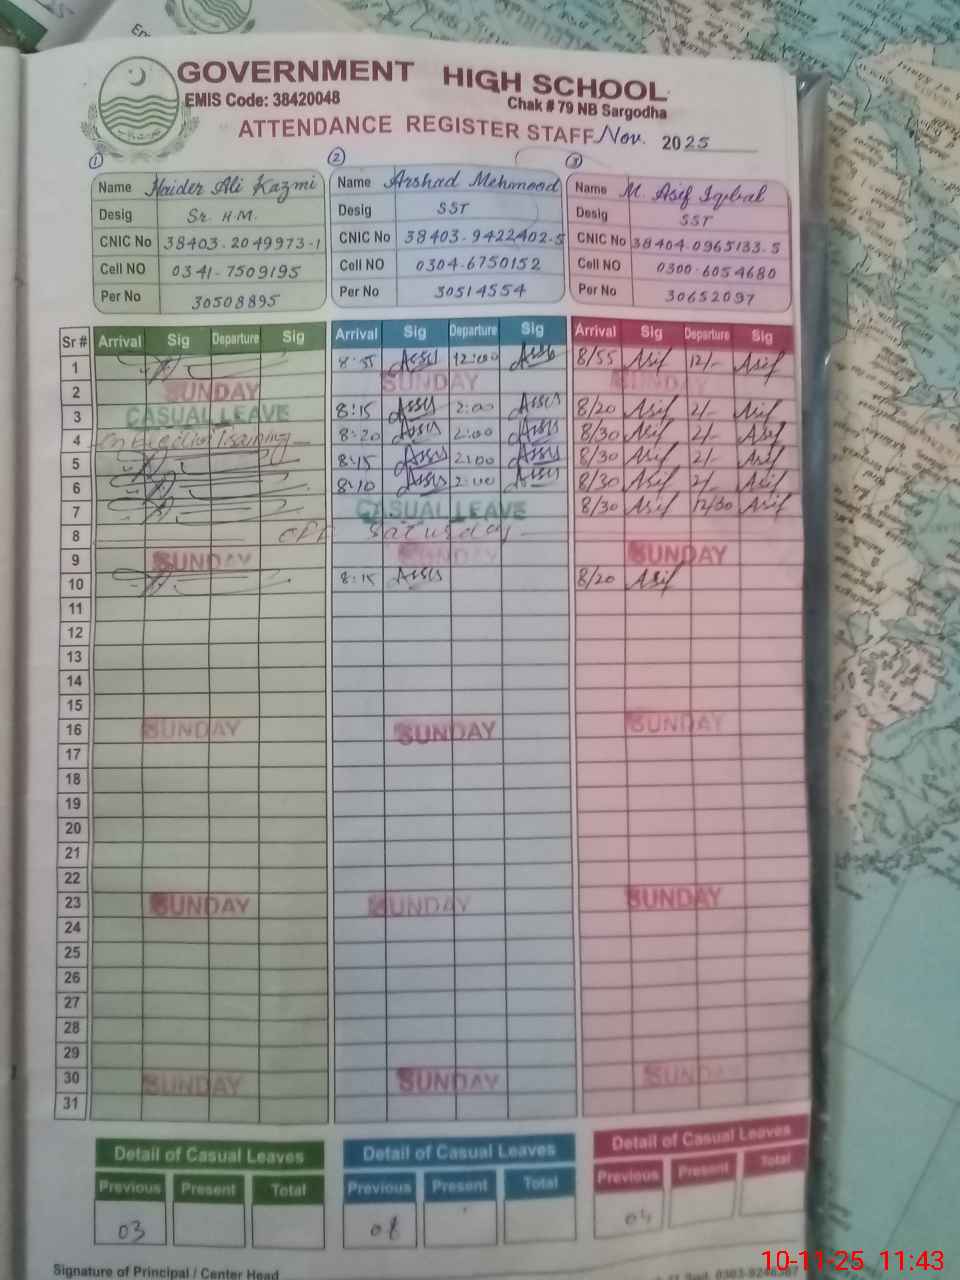 GOVERNMENT HIGH SCHOOL
EMIS Code: 38420048 Chak # 79 NB Sargodha
ATTENDANCE REGISTER STAFF Nov. 2025
1 2 3
Name Haider Ali Kazmi Name Arshad Mehmood Name M. Asif Iqbal
Desig Sr. H.M. Desig SST Desig SST
CNIC No 38403-2049973-1 CNIC No 38403-9422402-5 CNIC No 38404-0965133-5
Cell NO 0341-7509195 Cell NO 0304-6750152 Cell NO 0300-6054680
Per No 30508895 Per No 30514554 Per No 30652097
Sr # Arrival Sig Departure Sig Arrival Sig Departure Sig Arrival Sig Departure Sig
1 8:55 12:00 8/55 Asif 12/- Asif
2 SUNDAY SUNDAY SUNDAY
3 CASUAL LEAVE 8:15 2:00 8/20 Asif 2/- Asif
4 Training 8:20 2:00 8/30 Asif 2/- Asif
5 8:15 2:00 8/30 Asif 2/- Asif
6 8:10 2:00 8/30 Asif 2/- Asif
7 CASUAL LEAVE 8/30 Asif 12/30 Asif
8 Saturday
9 SUNDAY SUNDAY SUNDAY
10 8:15 8/20 Asif
11
12
13
14
15
16 SUNDAY SUNDAY SUNDAY
17
18
19
20
21
22
23 SUNDAY SUNDAY SUNDAY
24
25
26
27
28
29
30 SUNDAY SUNDAY SUNDAY
31
Detail of Casual Leaves Detail of Casual Leaves Detail of Casual Leaves
Previous Present Total Previous Present Total Previous Present Total
03 04
Signature of Principal / Center Head
10-11-25 11:43